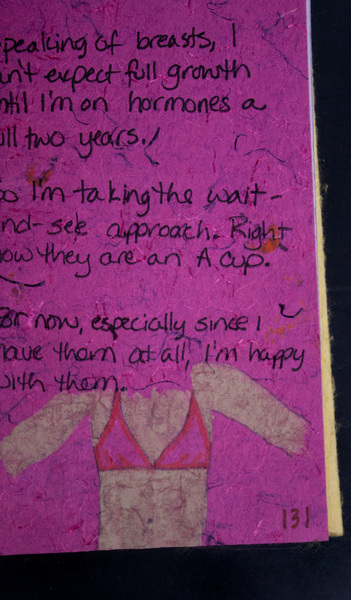 peaking of breasts, I
n't expect full growth
ntil I'm on hormones a
ull two years.
o I'm taking the wait-
nd-see approach. Right
ow they are an A cup.
or now, especially since I
have them at all, I'm happy
with them.
131